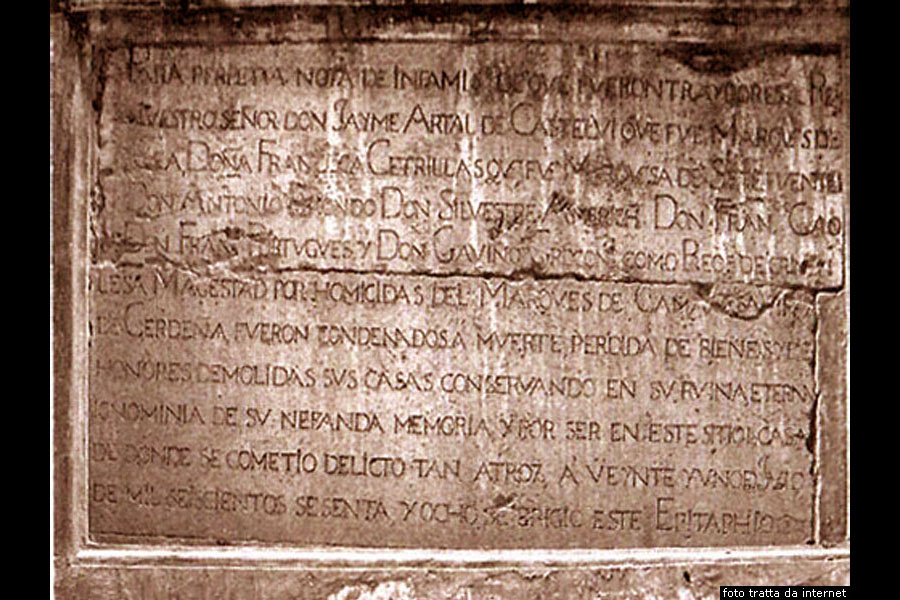 PARA PERPETUA NOTA DE INFAMIA DE QUE FUERON TRAYDORES A REY
NUESTRO SEÑOR DON JAYME ARTAL DE CASTELVI QUE FUE MARQUES DE
CEA, DOÑA FRANSISCA CETRILLAS QUE FUE MARQUESA DE SIETEFUENTES
DON ANTONIO DON SILVESTRE AYMERICH DON FRAN CAO
DON FRAN PORTUGUES Y DON GAVINO GRIXONI COMO REOS DE CRIMEN
LESA MAGESTAD POR HOMICIDAS DEL MARQUES DE CAMARASA
DE CERDEÑA, FUERON CONDENADOS A MUERTE, PERDIDA DE BIENES Y DE
HONORES DEMOLIDAS SUS CASAS CONSERVANDO EN SU RUINA ETERNA
IGNOMINIA DE SU NEFANDA MEMORIA, Y POR SER EN ESTE SITIO LA CASA
DE DONDE SE COMETIO DELICTO TAN ATROZ, A VEYNTE Y UNO DE JULIO
DE MIL SEISCIENTOS SESENTA, Y OCHO, SE ERIGIO ESTE EPITAPHIO
foto tratta da internet